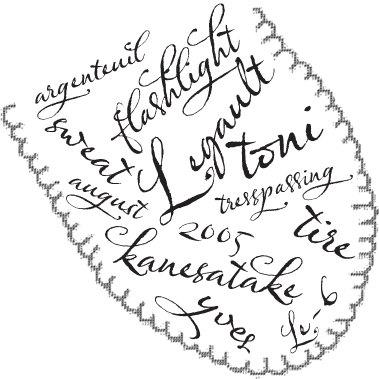 argenteuil
flashlight
sweat
Legault
toni
august
tresspassing
2005
tire
kanesatake
yves